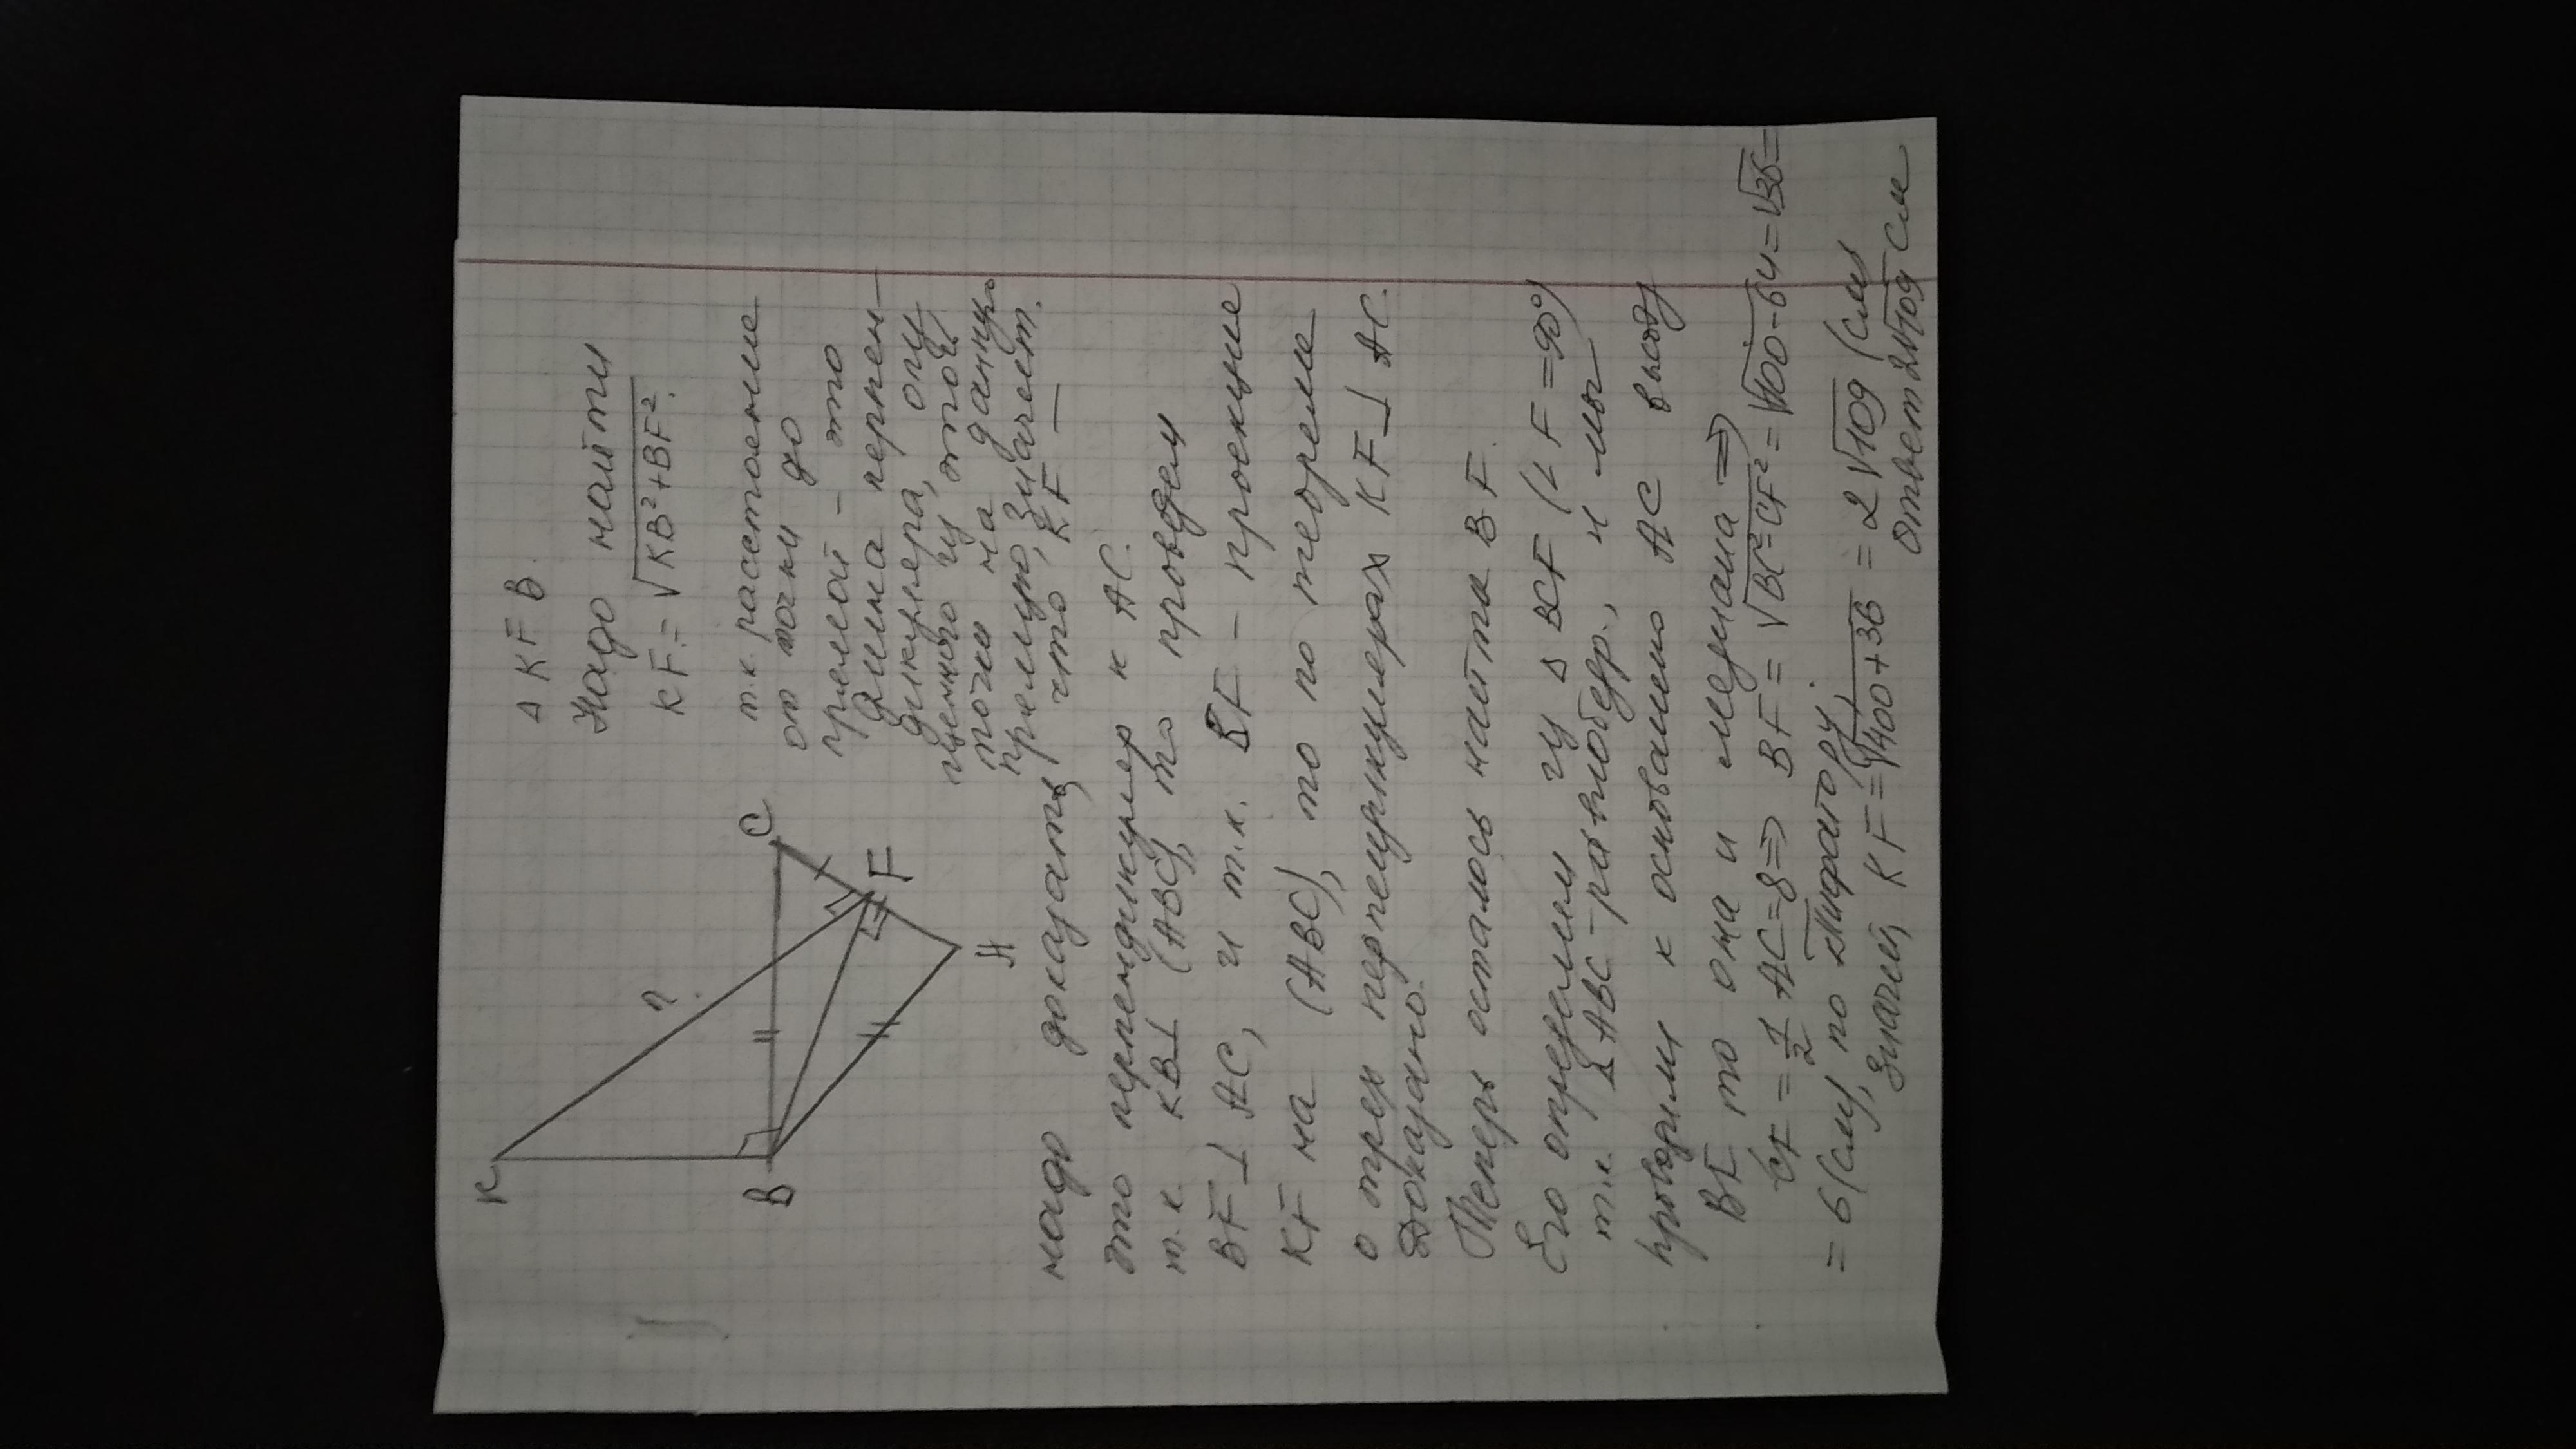 Δ KFB.
Надо найти
KF = √KB²+BF².
т.к. расстояние
от точки до
прямой - это
длина перпен-
дикуляра, опу
щенного из этой
точки на данную
прямую, значит,
что KF —
K
n
B
C
F
A
надо доказать,
это перпендикуляр к AC.
т.к. KB⊥(ABC), то проведем
BF⊥AC, и т.к. BF - проекцие
KF на (ABC), то по теореме
о трех перпендикулярах KF⊥AC.
Доказано.
Теперь осталось найти BF.
Его определим из Δ BCF (∠F=90°)
т.к. ΔABC - равнобедр., и мы
проводим к основанию AC высоту
BF то она и медиана ⇒
CF = 1/2 AC=8 ⇒ BF = √BC²-CF² = √100-64 = √36 =
= 6 (см), по Пифагору.
значит, KF = √400+36 = 2√109 (см)
Ответ 2√109 см